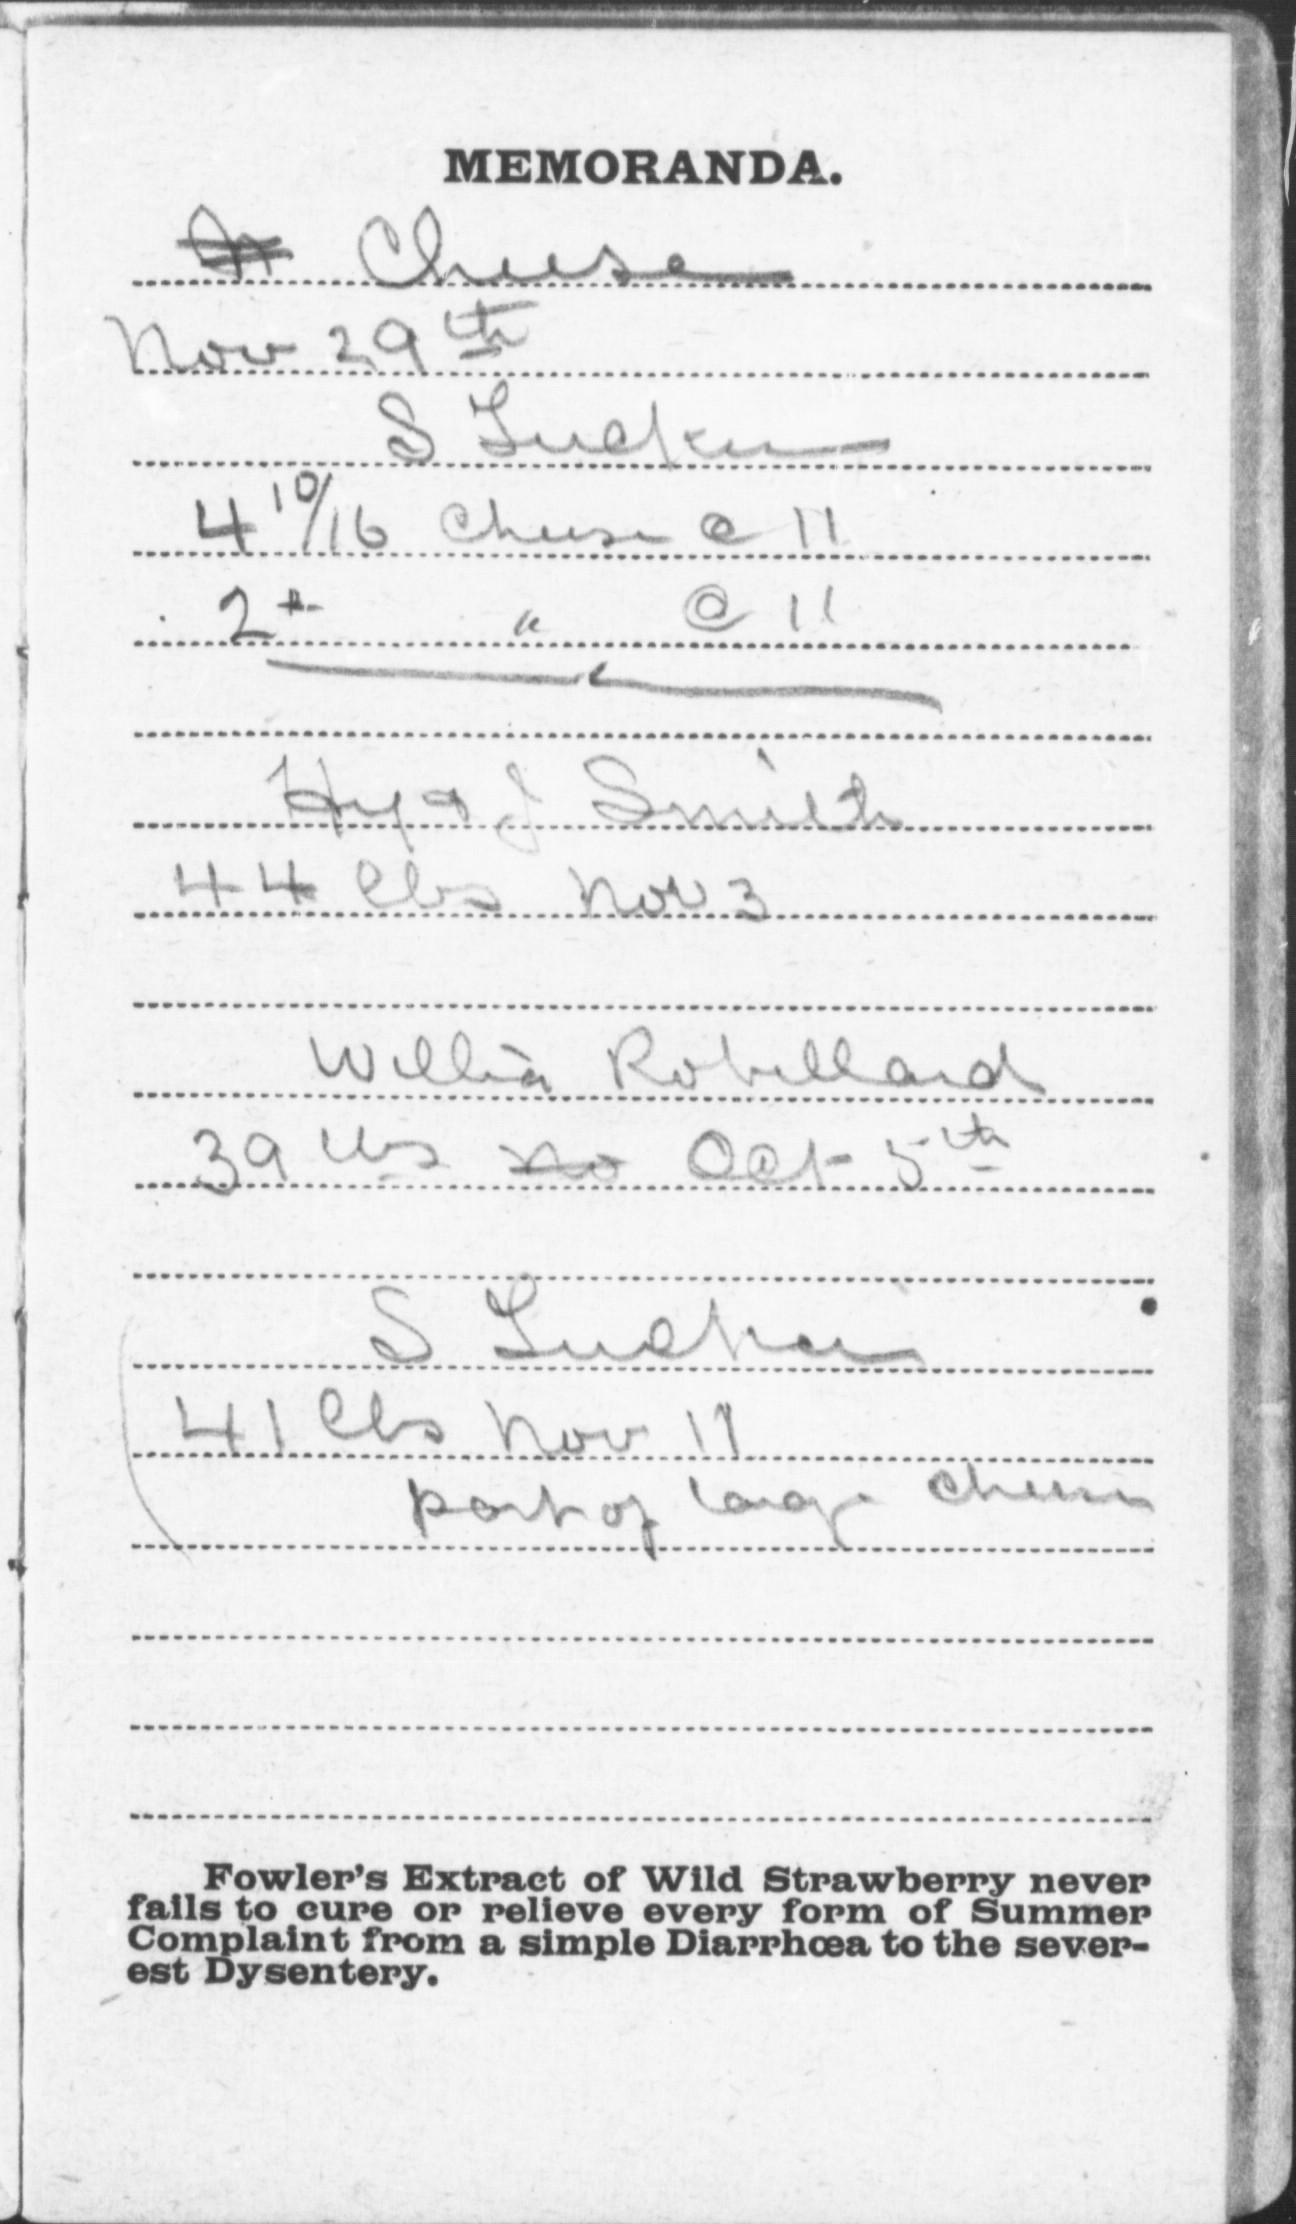 MEMORANDA.
Cheese
Nov 29th
S Tucker
4 10/16 Cheese @ 11
2 " @ 11
Hy & J Smith
44 lbs Nov 3
Robillard
39 lbs no Oct 5th
S Tucker
41 lbs Nov 17
part of large cheese
Fowler's Extract of Wild Strawberry never
fails to cure or relieve every form of Summer
Complaint from a simple Diarrhœa to the sever-
est Dysentery.